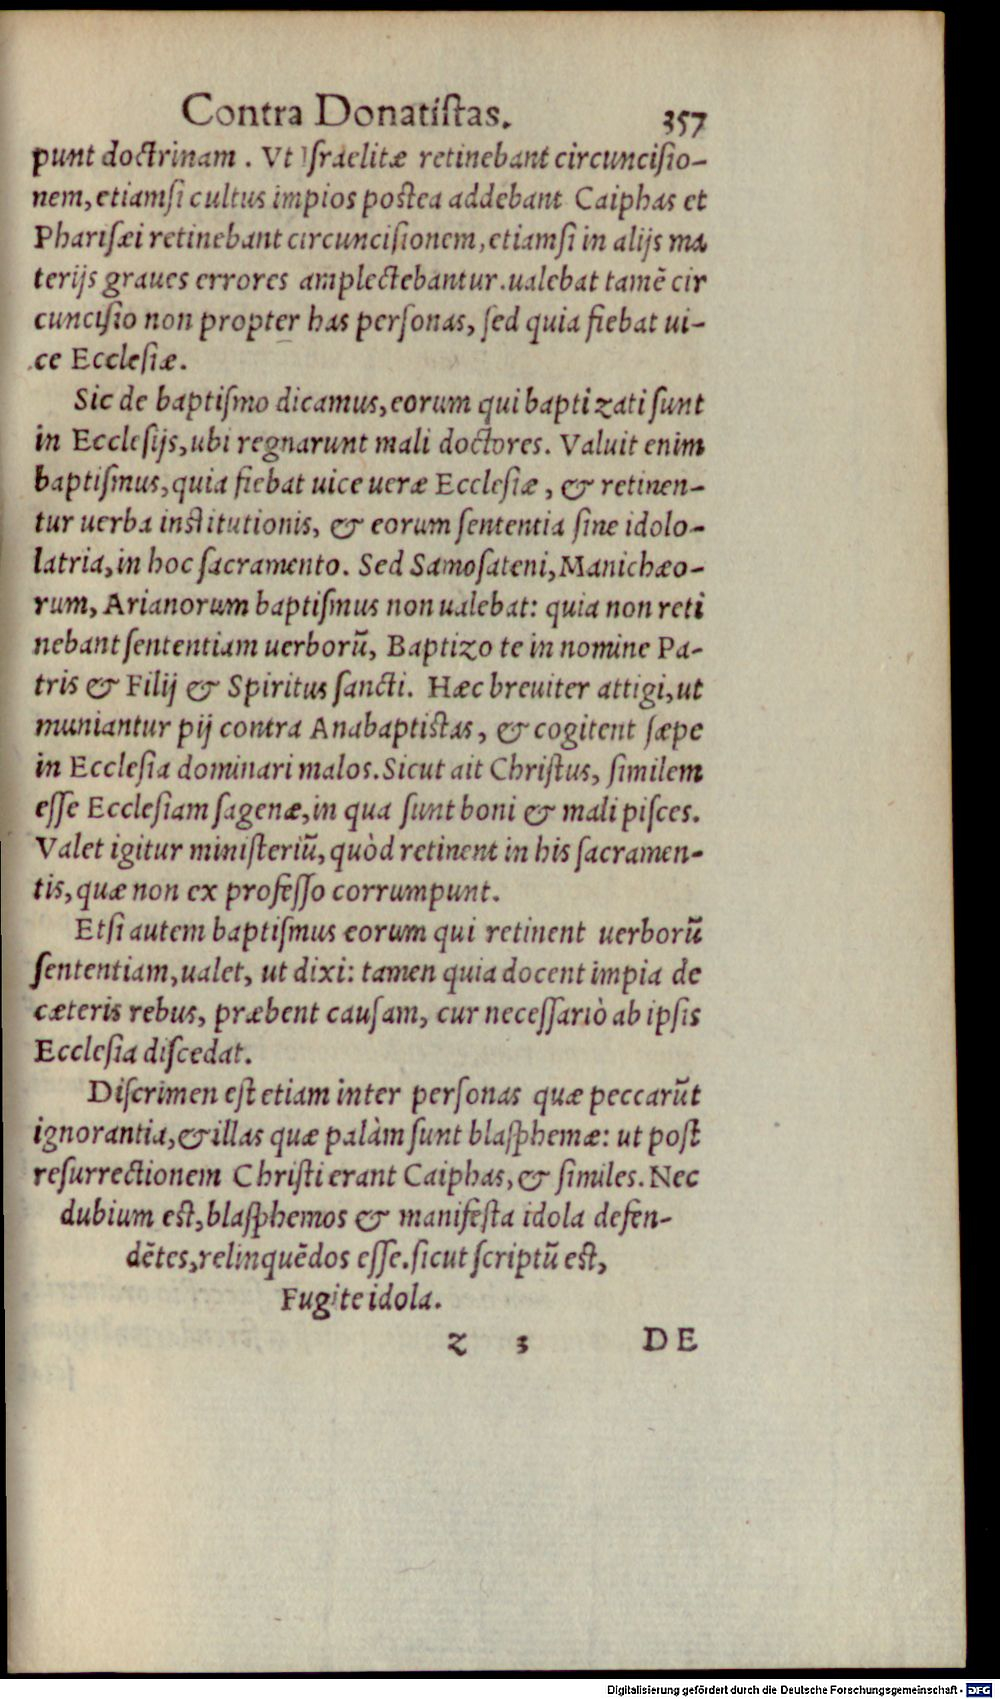 Contra Donatiſtas. 357
punt doctrinam . Vt Iſraelitæ retinebant circunciſio-
nem, etiamſi cultus impios postea addebant Caiphas et
Phariſæi retinebant circunciſionem, etiamſi in alijs ma
terijs graues errores amplectebantur. ualebat tamẽ cir
cunciſio non propter has perſonas, ſed quia fiebat ui-
ce Eccleſiæ.
Sic de baptiſmo dicamus, eorum qui baptizati ſunt
in Eccleſijs, ubi regnarunt mali doctores. Valuit enim
baptiſmus, quia fiebat uice ueræ Eccleſiæ, & retinen-
tur uerba institutionis, & eorum ſententia ſine idolo-
latria, in hoc ſacramento. Sed Samoſateni, Manichæo-
rum, Arianorum baptiſmus non ualebat: quia non reti
nebant ſententiam uerborũ, Baptizo te in nomine Pa-
tris & Filij & Spiritus ſancti. Hæc breuiter attigi, ut
muniantur pij contra Anabaptistas, & cogitent ſæpe
in Eccleſia dominari malos. Sicut ait Chriſtus, ſimilem
eſſe Eccleſiam ſagenæ, in qua ſunt boni & mali piſces.
Valet igitur miniſteriũ, quòd retinent in his ſacramen-
tis, quæ non ex profeſſo corrumpunt.
Etſi autem baptiſmus eorum qui retinent uerborũ
ſententiam, ualet, ut dixi: tamen quia docent impia de
cæteris rebus, præbent cauſam, cur neceſſariò ab ipſis
Eccleſia diſcedat.
Diſcrimen eſt etiam inter perſonas quæ peccarũt
ignorantia, & illas quæ palàm ſunt blaſphemæ: ut poſt
reſurrectionem Chriſti erant Caiphas, & ſimiles. Nec
dubium eſt, blaſphemos & manifeſta idola defen-
dẽtes, relinquẽdos eſſe. ſicut ſcriptũ eſt,
Fugite idola.
z 3 DE
Digitalisierung gefördert durch die Deutsche Forschungsgemeinschaft - DFG